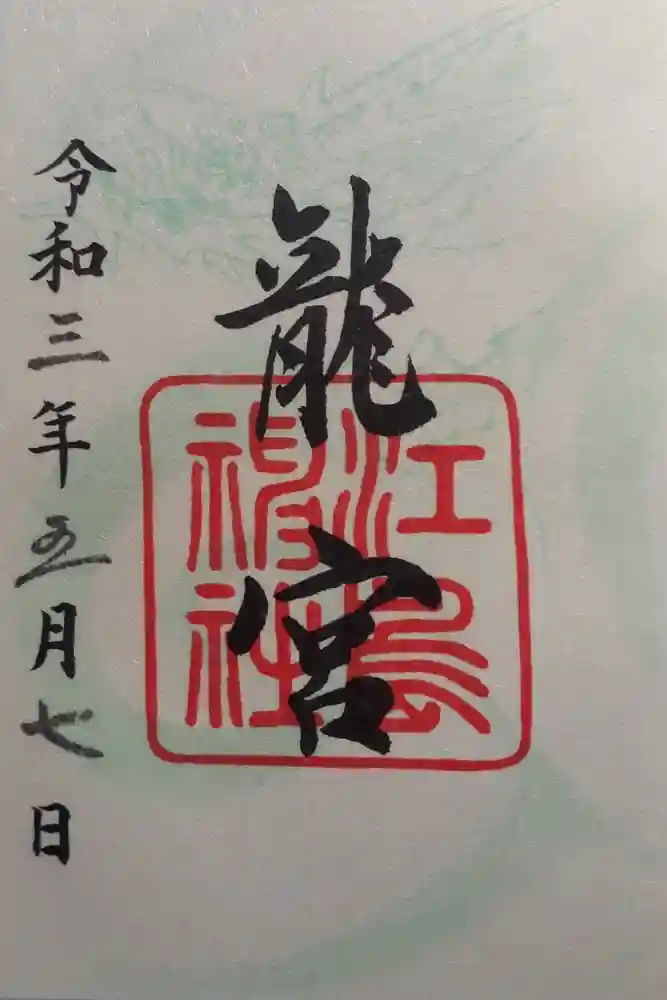 龍宮
江島神社
令和三年五月七日